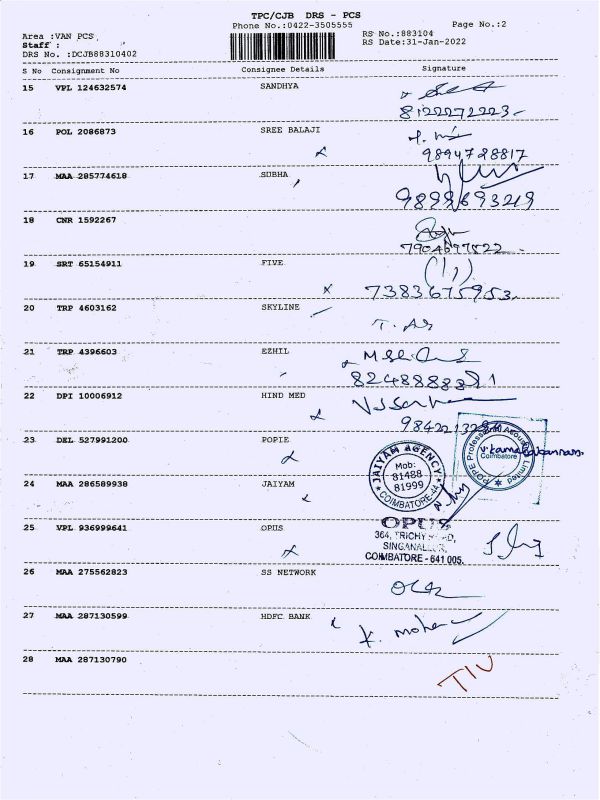 TPC/CJB DRS - PCS
Phone No.:0422-3505555 Page No.:2
Area :VAN PCS
RS No.:883104
Staff :
RS Date:31-Jan-2022
DRS No. :DCJB88310402
S No Consignment No Consignee Details Signature
15 VPL 124632574 SANDHYA
8122272223
16 POL 2086873 SREE BALAJI
9894728817
17 MAA 285774618 SUBHA
18 CNR 1592267
19 SRT 65154911 FIVE
7383675953
20 TRP 4603162 SKYLINE
21 TRP 4396603 EZHIL
22 DPI 10006912 HIND MED
23 DEL 527991200 POPIE
Coimbatore
JAIYAM AGENCY
Mob:
81488
81999
COIMBATORE-44
24 MAA 286589938 JAIYAM
25 VPL 936999641 OPUS
OPUS
364, TRICHY ROAD,
SINGANALLUR,
COIMBATORE - 641 005.
26 MAA 275562823 SS NETWORK
27 MAA 287130599 HDFC BANK
K. mohan
28 MAA 287130790